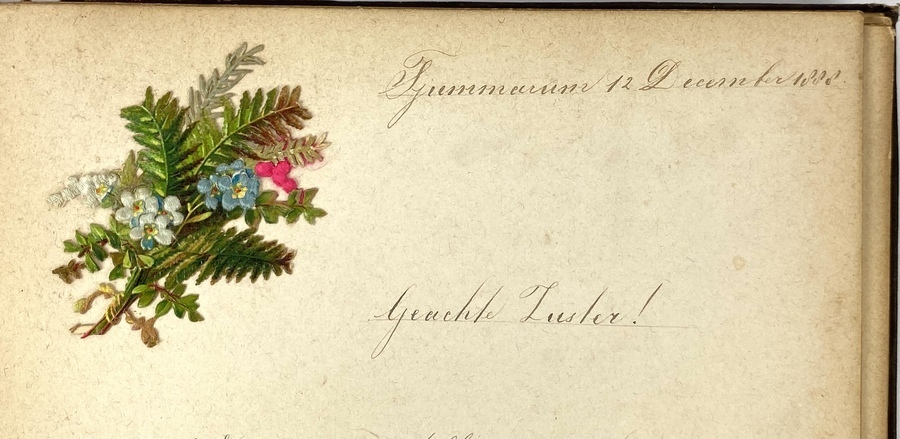 Tjummarum 12 December 1888.
Geachte Zuster!